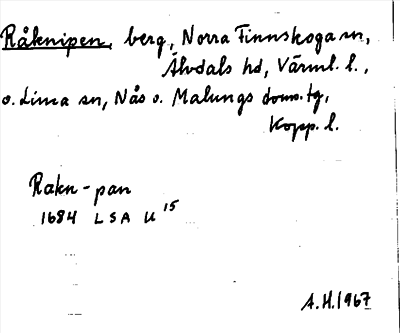 Råknipen, berg, Norra Finnskoga sn,
Älvdals hd, Värml. l.,
o. Lima sn, Nås o. Malungs doms. tg,
Kopp. l.
Rakn-pan
1684 LSA U 15
A.H. 1967